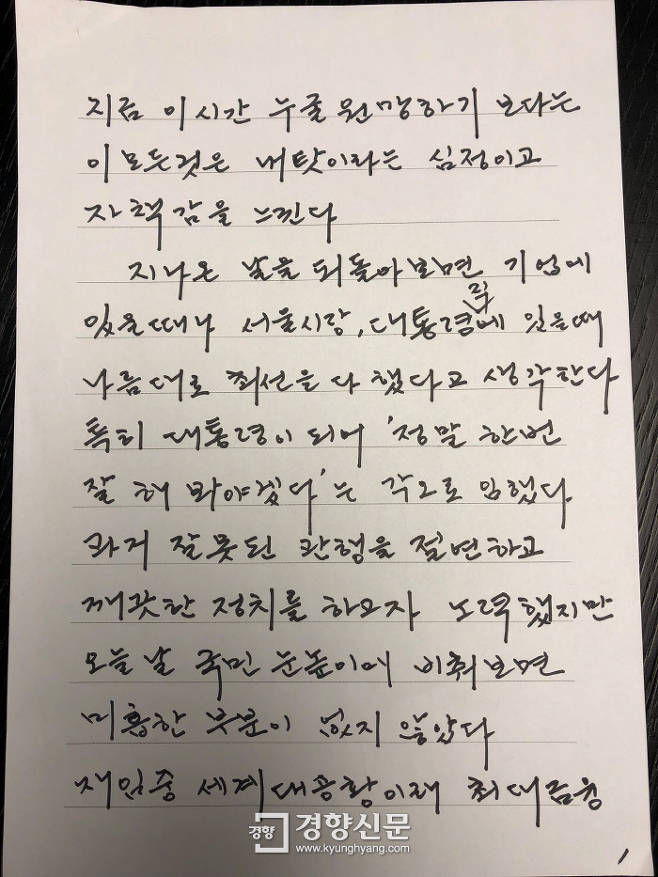 지금 이시간 누굴 원망하기 보다는
이 모든것은 내탓이라는 심정이고
자책감을 느낀다
지나온 날을 되돌아보면 기업에
있을때나 서울시장, 대통령직에 있을때
나름대로 최선을 다 했다고 생각한다
특히 대통령이 되어 '정말 한번
잘 해 봐야겠다'는 각오로 임했다
과거 잘못된 관행을 절연하고
깨끗한 정치를 하고자 노력했지만
오늘 날 국민 눈높이에 비춰보면
미흡한 부분이 없지 않았다
재임중 세계대공황이래 최대금융
경향 경향신문
www.kyunghyang.com
1